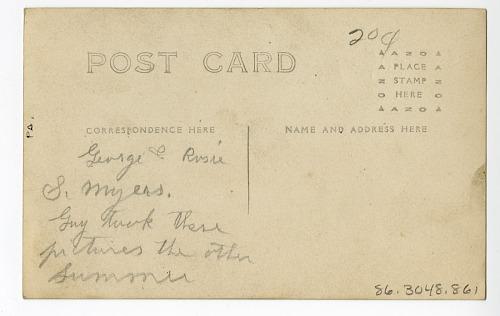 20¢
POST CARD
AZOA
PLACE
STAMP
HERE
AZOA
PA.
CORRESPONDENCE HERE
NAME AND ADDRESS HERE
George & Rosie
S. Myers.
Guy took these
pictures the other
Summer
86.3048.861